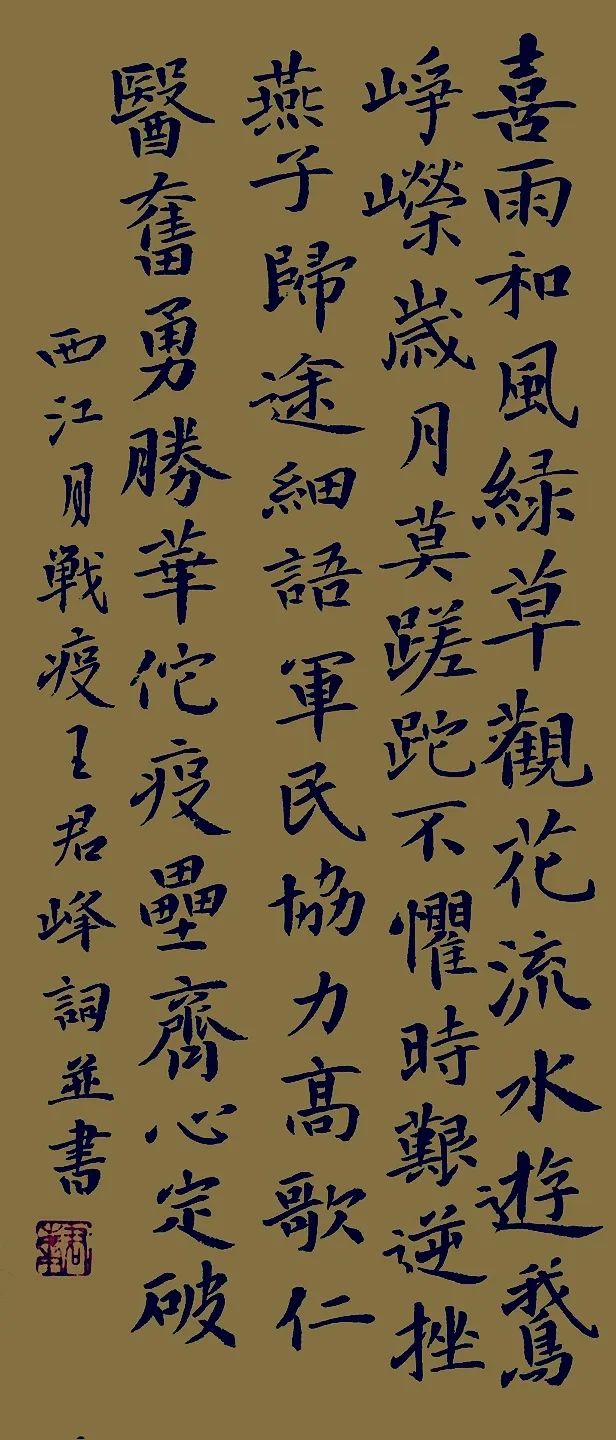 喜雨和風緑草觀花流水遊鵞
崢嶸歲月莫蹉跎不懼時艱逆挫
燕子歸途細語軍民協力高歌仁
醫奮勇勝華佗疫壘齊心定破
西江月戰疫王君峰詞並書